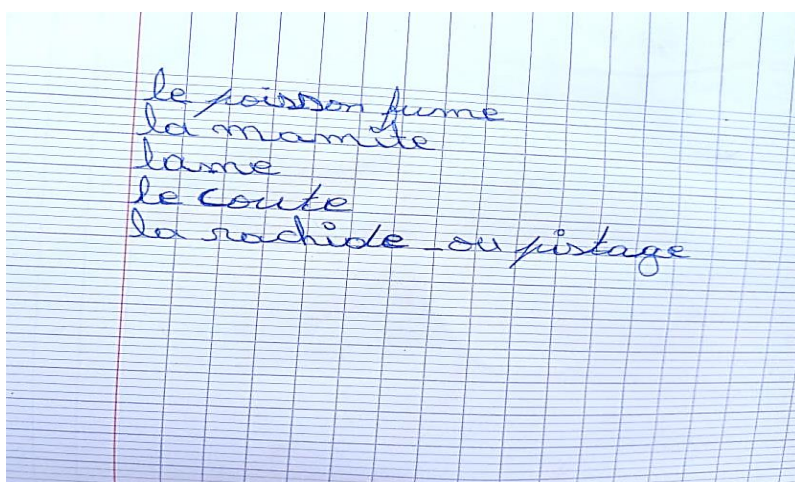 le poisson fume
la mamite
lame
le coute
la rachide - ou pistage